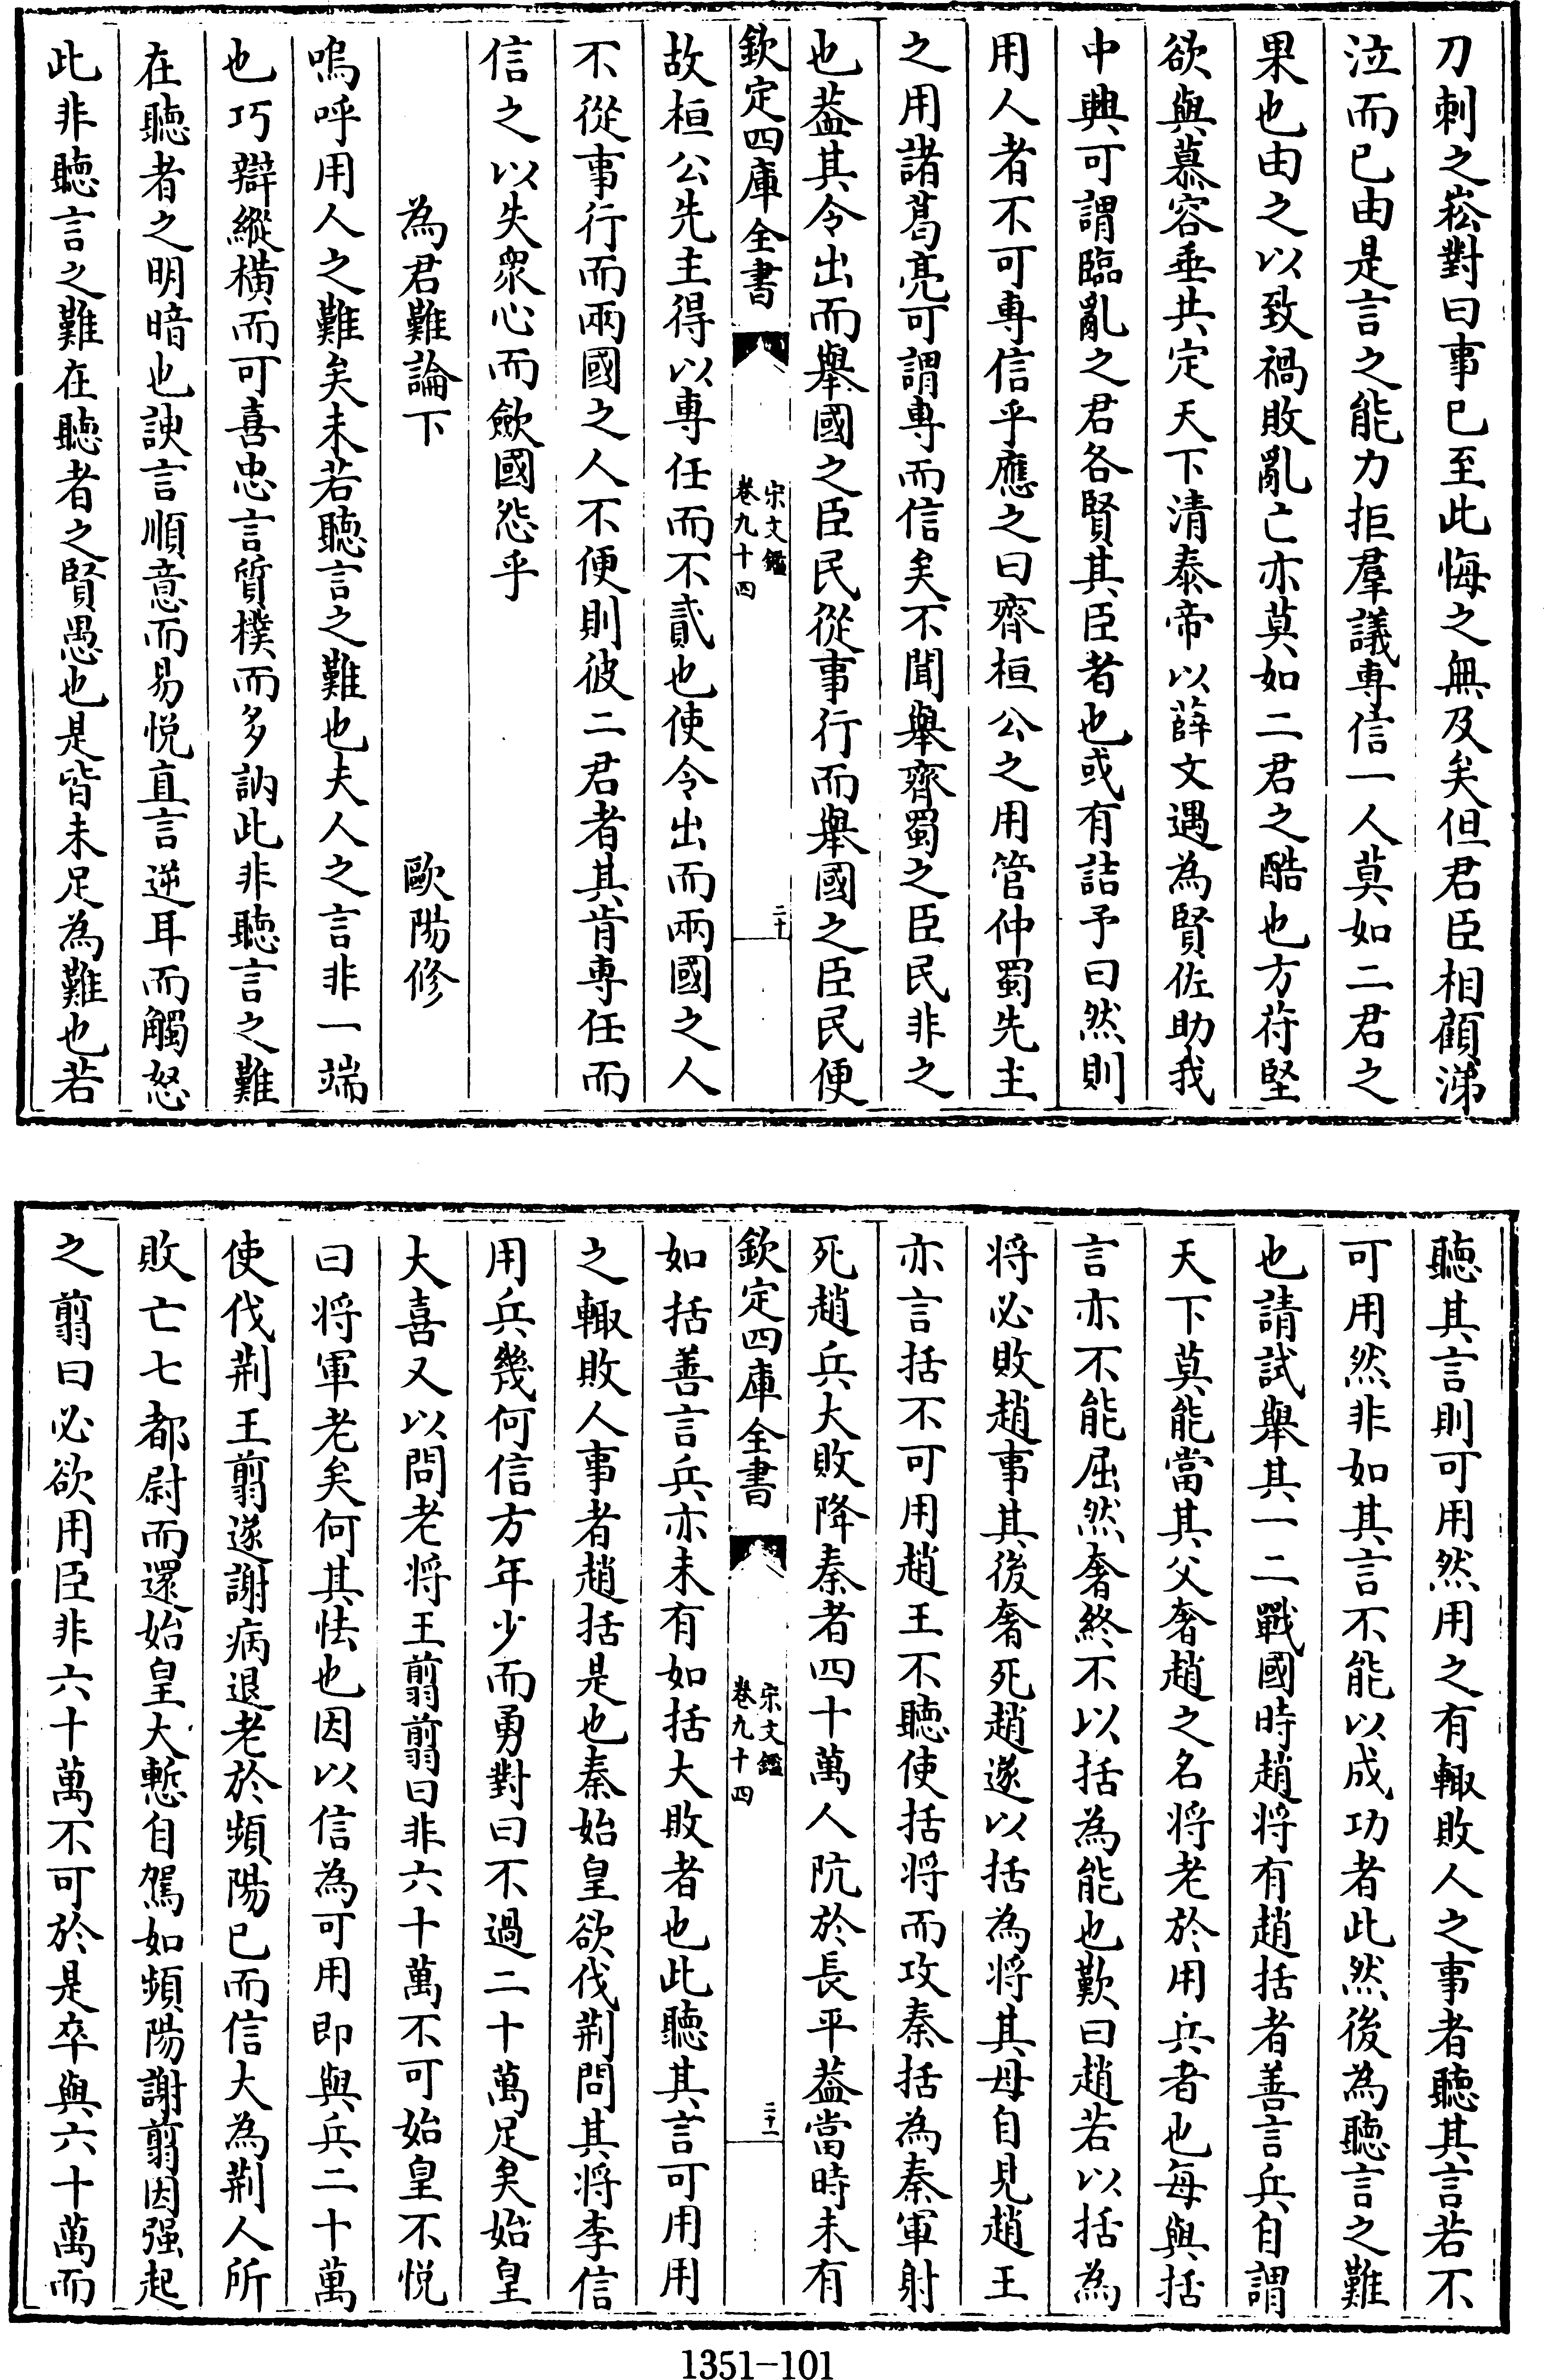 刀刺之崧對曰事已至此悔之無及矣但君臣相顧涕
泣而已由是言之能力拒羣議專信一人莫如二君之
果也由之以致禍敗亂亡亦莫如二君之酷也方苻堅
欲與慕容垂共定天下清泰帝以薛文遇為賢佐助我
中興可謂臨亂之君各賢其臣者也或有詰予曰然則
用人者不可專信乎應之曰齊桓公之用管仲蜀先主
之用諸葛亮可謂專而信矣不聞舉齊蜀之臣民非之
也葢其令出而舉國之臣民從事行而舉國之臣民便
欽定四庫全書
宋文鑑
卷九十四
二十
故桓公先主得以專任而不貳也使令出而兩國之人
不從事行而兩國之人不便則彼二君者其肯專任而
信之以失衆心而歛國怨乎
為君難論下 歐陽修
嗚呼用人之難矣未若聽言之難也夫人之言非一端
也巧辯縱橫而可喜忠言質樸而多訥此非聽言之難
在聽者之明暗也諛言順意而易悅直言逆耳而觸怒
此非聽言之難在聽者之賢愚也是皆未足為難也若
聽其言則可用然用之有輙敗人之事者聽其言若不
可用然非如其言不能以成功者此然後為聽言之難
也請試舉其一二戰國時趙将有趙括者善言兵自謂
天下莫能當其父奢趙之名将老於用兵者也每與括
言亦不能屈然奢終不以括為能也歎曰趙若以括為
将必敗趙事其後奢死趙遂以括為将其母自見趙王
亦言括不可用趙王不聽使括将而攻秦括為秦軍射
死趙兵大敗降秦者四十萬人阬於長平葢當時未有
欽定四庫全書
宋文鑑
卷九十四
二十一
如括善言兵亦未有如括大敗者也此聽其言可用用
之輙敗人事者趙括是也秦始皇欲伐荆問其将李信
用兵幾何信方年少而勇對曰不過二十萬足矣始皇
大喜又以問老将王翦翦曰非六十萬不可始皇不悅
曰将軍老矣何其怯也因以信為可用即與兵二十萬
使伐荆王翦遂謝病退老於頻陽已而信大為荆人所
敗亡七都尉而還始皇大慙自駕如頻陽謝翦因强起
之翦曰必欲用臣非六十萬不可於是卒與六十萬而
1351-101